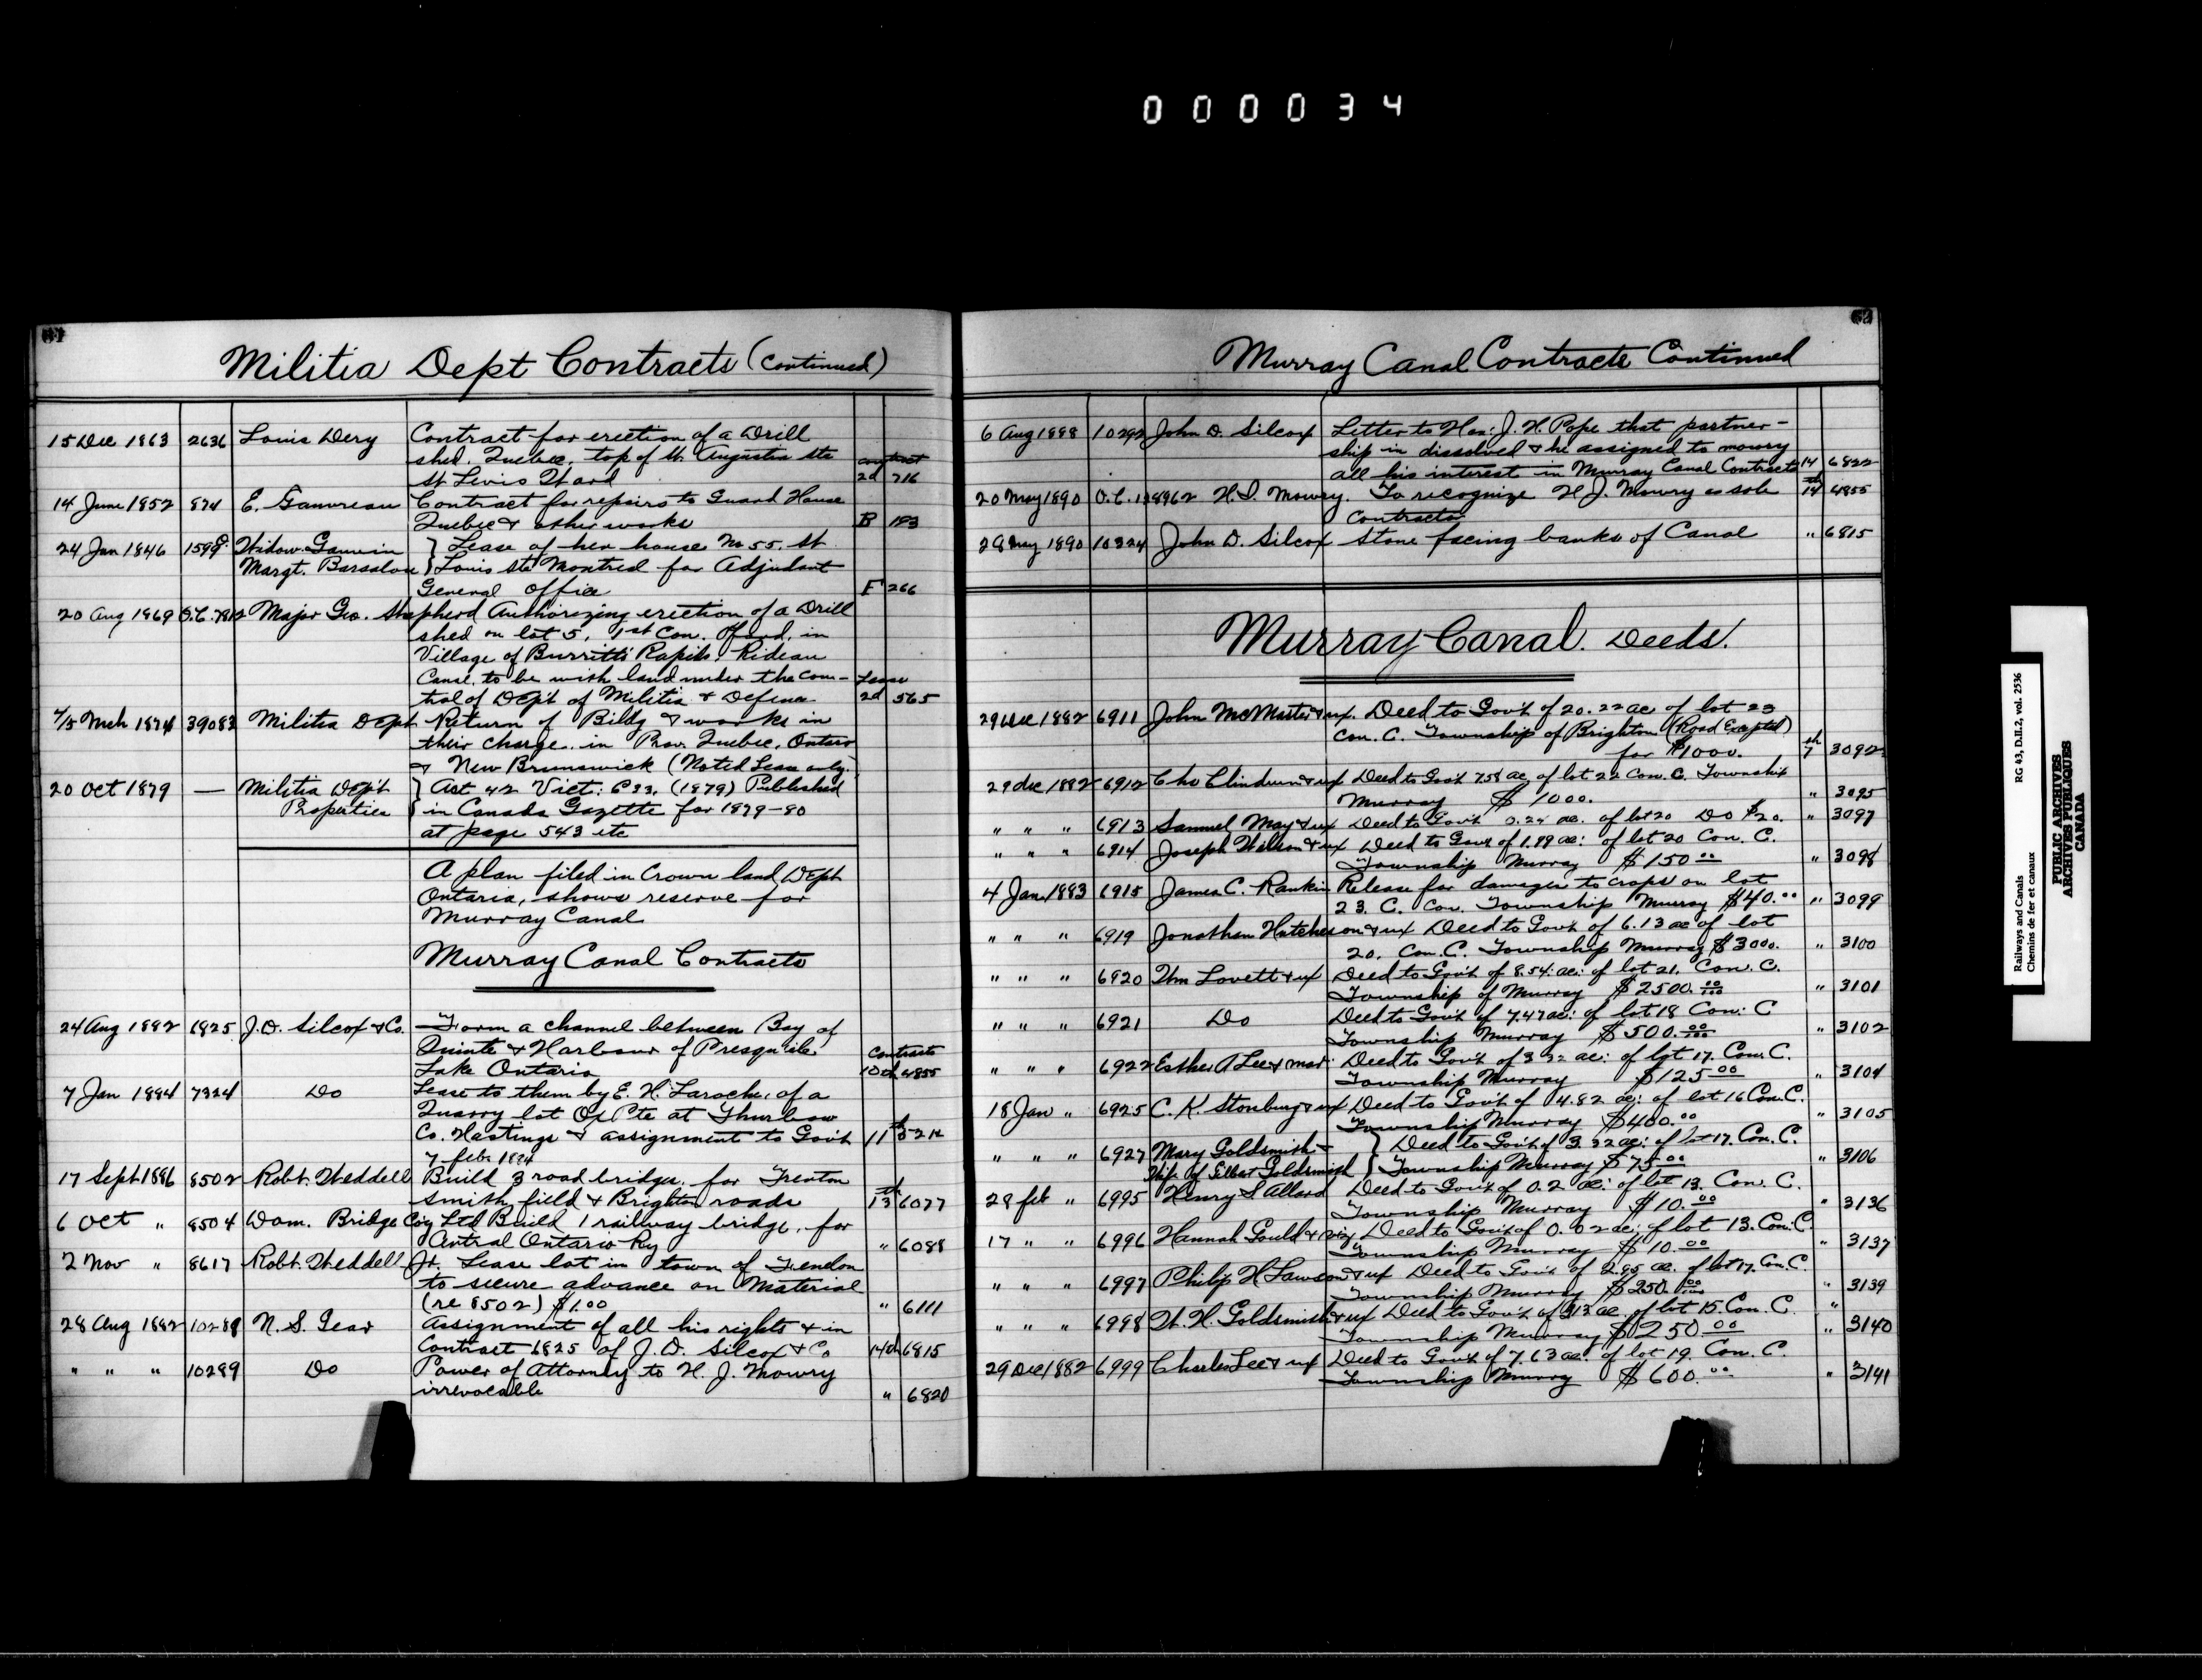 000034
Militia Dept Contracts (Continued)
15 Dec 1863 2636 Louis Dery Contract for erection of a Drill
shed. Quebec, top of St. Augustin Sts
St Louis Ward contract 2d 716
14 June 1852 874 E. Gauvreau Contract for repairs to Guard House
Quebec & other works B 183
24 Jan 1846 Widow Gauvin } Lease of her house No 55. St
Margt. Barsalou } Louis Ste Montreal for Adjudant
General Office F 266
20 Aug 1869 O.C. 7812 Major Geo. Shepherd Authorizing erection of a Drill
shed on lot 5, 1st Con. in
Village of Burritts Rapids, Rideau
Canal, to be with land under the con-
trol of Dept of Militia & Defence Lease 2d 565
4/5 Mch 1874 39083 Militia Dept Return of Bildg & works in
their charge in Prov. Quebec, Ontario
& New Brunswick (Noted Lease only.)
20 Oct 1879 — Militia Dep't } Act 42 Vict: C 33, (1879) Published
Properties } in Canada Gazette for 1879-80
at page 543 etc
A plan filed in Crown land Dept
Ontario, shows reserve for
Murray Canal
Murray Canal Contracts
24 Aug 1882 6825 J.D. Silcox & Co. Form a channel between Bay of
Quinte & Harbour of Presqu'ile
Lake Ontario Contracts 10th 4855
7 Jan 1884 7324 Do Lease to them by E. H. Laroche, of a
Quarry lot Ox Pte at Thurlow
Co. Hastings & assignment to Gov't 11th
7 feb. 1884
17 Sept 1886 8502 Robt. Weddell Build 3 road bridges, for Trenton
Smithfield & Brighton roads 13th 6077
6 Oct " 8504 Dom. Bridge Co'y Ltd Build 1 railway bridge, for
Central Ontario Ry " 6088
2 Nov " 8617 Robt. Weddell Jr. Lease lot in town of Trenton
to secure advance on Material
(re 8502) $1.00 " 6111
28 Aug 1882 10288 N. S. Gear Assignment of all his rights & in
Contract 6825 of J. D. Silcox & Co 14th 6815
" " " 10289 Do Power of Attorney to H. J. Mowry
irrevocable " 6820
Murray Canal Contracts Continued
6 Aug 1888 10292 John D. Silcox Letter to Hon: J. H. Pope that partner-
ship in dissolved & he assigned to Mowry
all his interest in Murray Canal Contracts 14 6822
20 May 1890 O.C. 138962 H. J. Mowry. To recognize H J. Mowry as sole 14th 4855
Contractor
28 May 1890 10324 John D. Silcox Stone facing banks of Canal " 6815
Murray Canal. Deeds.
29 Dec 1882 6911 John McMaster & ux. Deed to Gov't of 20.22 ac of lot 23
Con. C. Township of Brighton (Road Excepted)
for $1000. 7th 3092
29 dec 1882 6912 Deed to Gov't 7.58 ac of lot 22 Con. C. Township
Murray $1000. " 3095
" " " 6913 Samuel May & ux Deed to Gov't 0.24 ac. of lot 20 Do $20. " 3097
" " " 6914 Joseph Wilson & ux Deed to Govt of 1.99 ac: of lot 20 Con. C.
Township Murray $150 00 " 3098
4 Jan 1883 6915 James C. Rankin Release for damages to crops on lot
23. C. Con. Township Murray $40.00 " 3099
" " " 6919 Jonathan Hutcheson & ux Deed to Gov't of 6.13 ac of lot
20. Con. C. Township Murray $3000. " 3100
" " " 6920 Wm Lovett & ux Deed to Gov't of 8.54 ac: of lot 21. Con. C.
Township of Murray $2500. 00/100 " 3101
" " " 6921 Do Deed to Gov't of 7.47 ac: of lot 18 Con: C
Township Murray $500. 00/100 " 3102
" " " 6922 Esther A Lee & mar: Deed to Gov't of 3.32 ac: of lot 17. Con. C.
Township Murray $125 00 " 3104
18 Jan " 6925 C. K. Stonburg & ux Deed to Gov't of 4.82 ac: of lot 16 Con. C.
Township Murray $400. 00 " 3105
" " " 6927 Mary Goldsmith } Deed to Gov't of 3.32 ac: of lot 17. Con. C.
Wife of Elbert Goldsmith } Township Murray $75 00 " 3106
28 feb " 6995 Henry S Allard Deed to Gov't of 0.2 ac: of lot 13. Con. C.
Township Murray $10. 00 " 3136
17 " " 6996 Hannah Gould & Deed to Gov't of 0.02 ac: of lot 13. Con: C.
Township Murray $10. 00 " 3137
" " " 6997 Philip H Lawson & ux Deed to Gov't of 2.95 ac. of lot 17. Con. C.
Township Murray $250. 00 " 3139
" " " 6998 W. H. Goldsmith & ux Deed to Gov't of ac. of lot 15. Con. C. "
Township Murray $250 00 " 3140
29 Dec 1882 6999 Charles Lee & ux Deed to Gov't of 7.63 ac: of lot 19. Con. C.
Township Murray $600. 00 " 3141
Railways and Canals RG 43, D.II.2, vol. 2536
Chemins de fer et canaux
PUBLIC ARCHIVES
ARCHIVES PUBLIQUES
CANADA